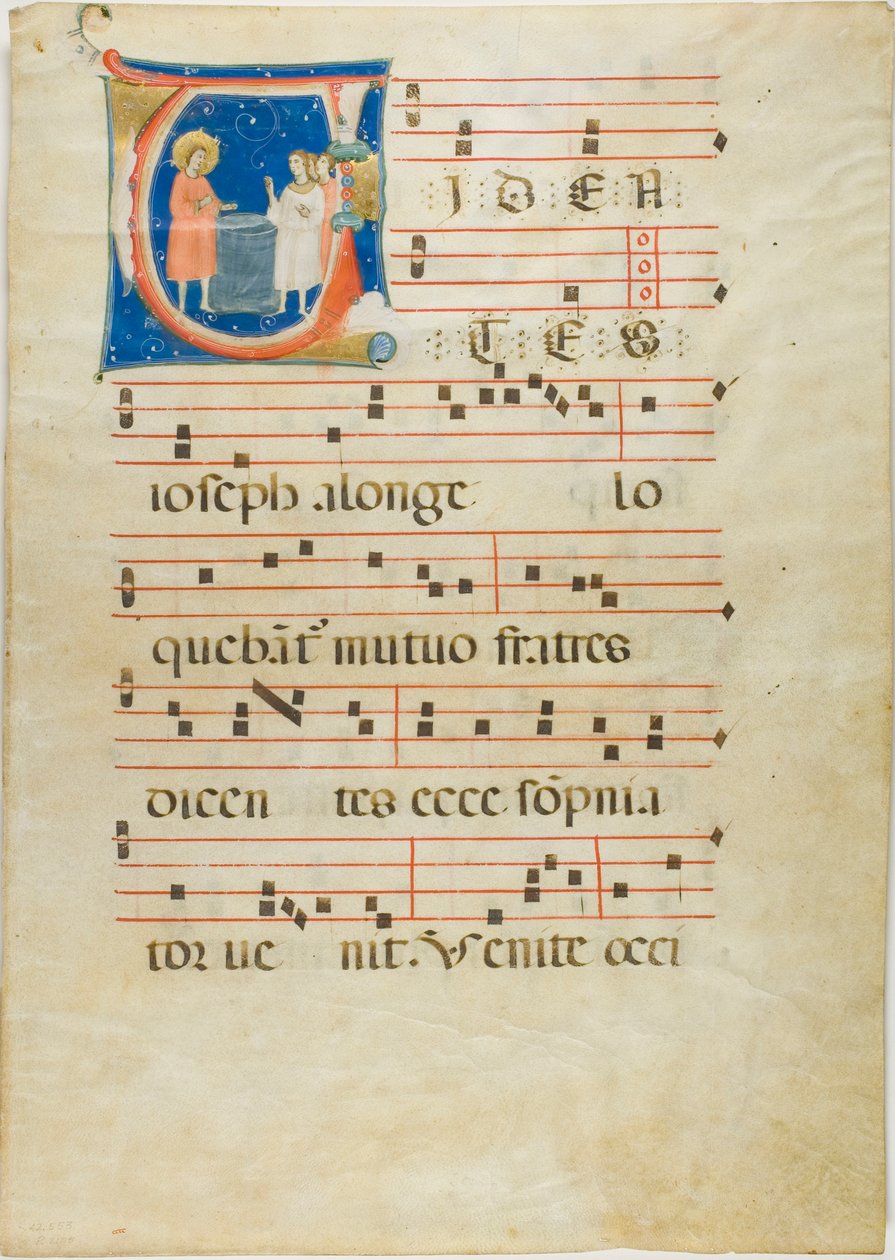 VIDEN
TES
ioseph alonge lo
quebãt᷑ mutuo fratres
dicen tes ecce sõpnia
tor ue nit. ℣ enite occi